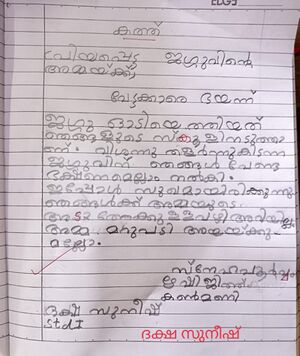 കത്ത്
പ്രിയപ്പെട്ട ജഗ്ഗുവിന്റെ
അമ്മയ്ക്ക്
വേട്ടക്കാരെ ഭയന്ന്
ജഗ്ഗു ഓടിയെത്തിയത്
ഞങ്ങളുടെ സ്കൂളിനടുത്താ
ണ്. വിശന്നു തളർന്നുകിടന്ന
ജഗ്ഗുവിന് ഞങ്ങൾ വേണ്ട
ഭക്ഷണമെല്ലാം നൽകി.
ഇപ്പോൾ സുഖമായിരിക്കുന്നു
ഞങ്ങൾക്ക് അമ്മയുടെ
അടുത്തേക്കുള്ള വഴി അറിയില്ല
അമ്മ മറുപടി അയയ്ക്കു
മല്ലോ.
സ്നേഹപൂർവ്വം
കൺമണി
ദക്ഷ സുനീഷ്
Std I
ദക്ഷ സുനീഷ്